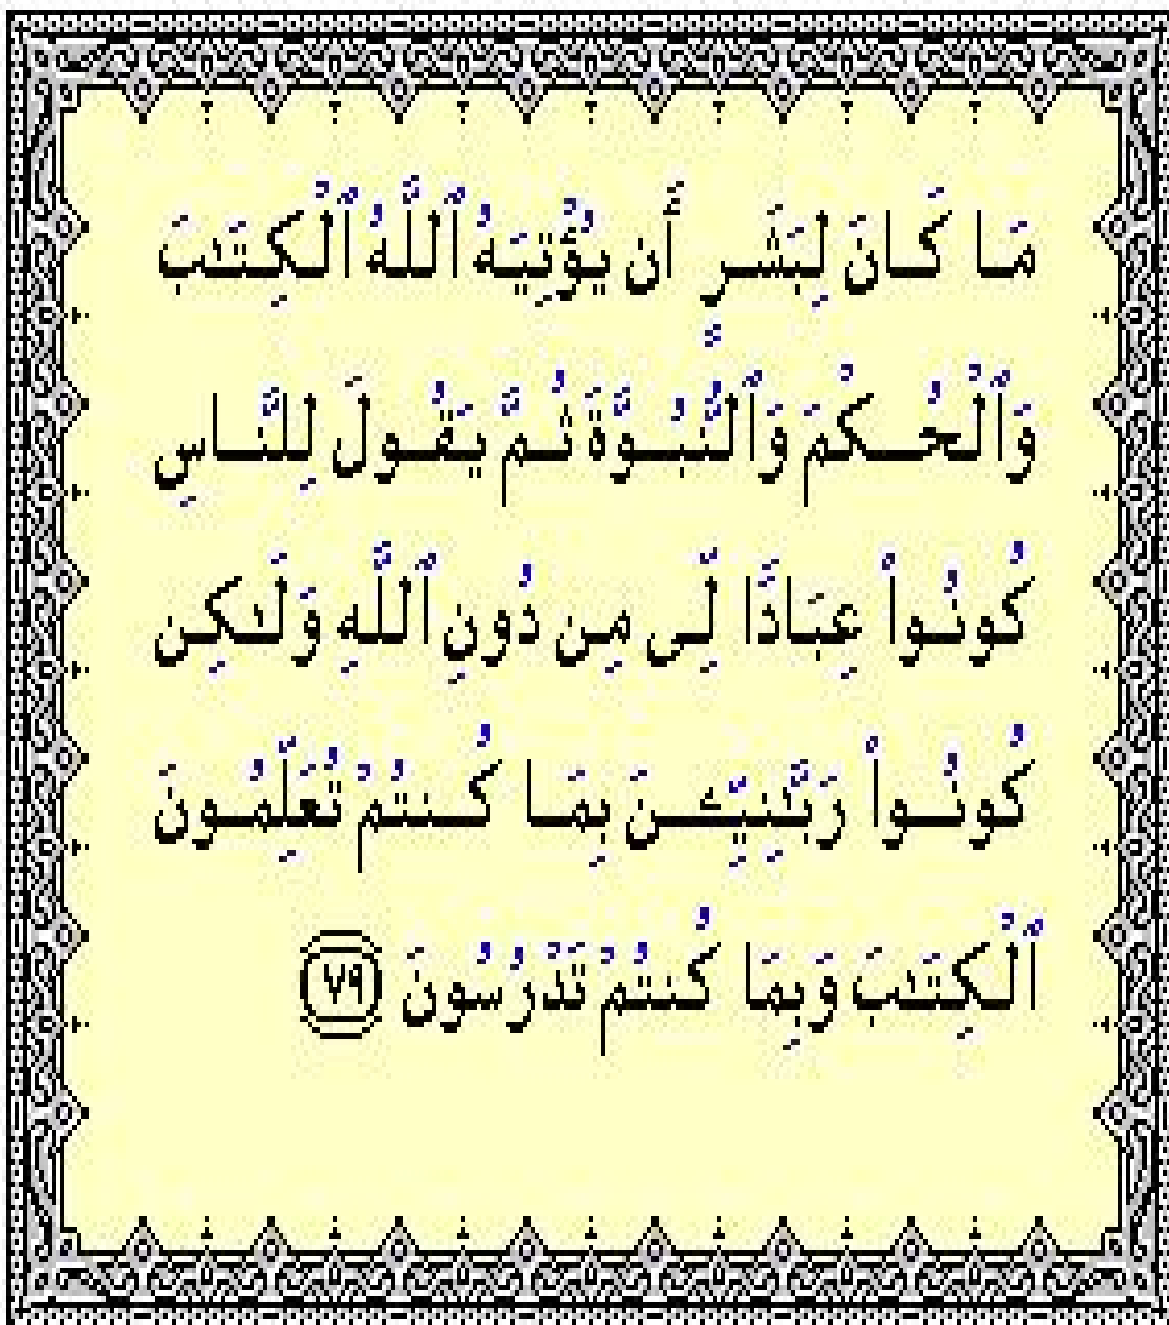 مَا كَانَ لِبَشَرٍ أَن يُؤْتِيَهُ ٱللَّهُ ٱلْكِتَـٰبَ
وَٱلْحُكْمَ وَٱلنُّبُوَّةَ ثُمَّ يَقُولَ لِلنَّاسِ
كُونُوا۟ عِبَادًا لِّى مِن دُونِ ٱللَّهِ وَلَـٰكِن
كُونُوا۟ رَبَّـٰنِيِّـۧنَ بِمَا كُنتُمْ تُعَلِّمُونَ
ٱلْكِتَـٰبَ وَبِمَا كُنتُمْ تَدْرُسُونَ ٧٩